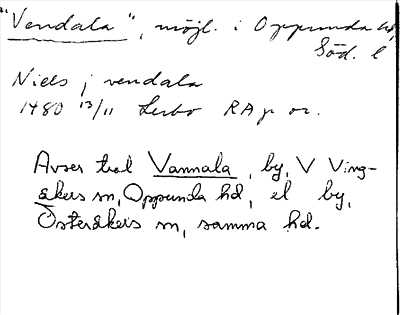 "Vendala", möjl. i Oppunda hd,
Söd. l
Niels j vendala
1480 13/11 Lerbo RA p or.
Avser trol Vannala, by, V Ving-
åkers sn, Oppunda hd, el by,
Österåkers sn, samma hd.